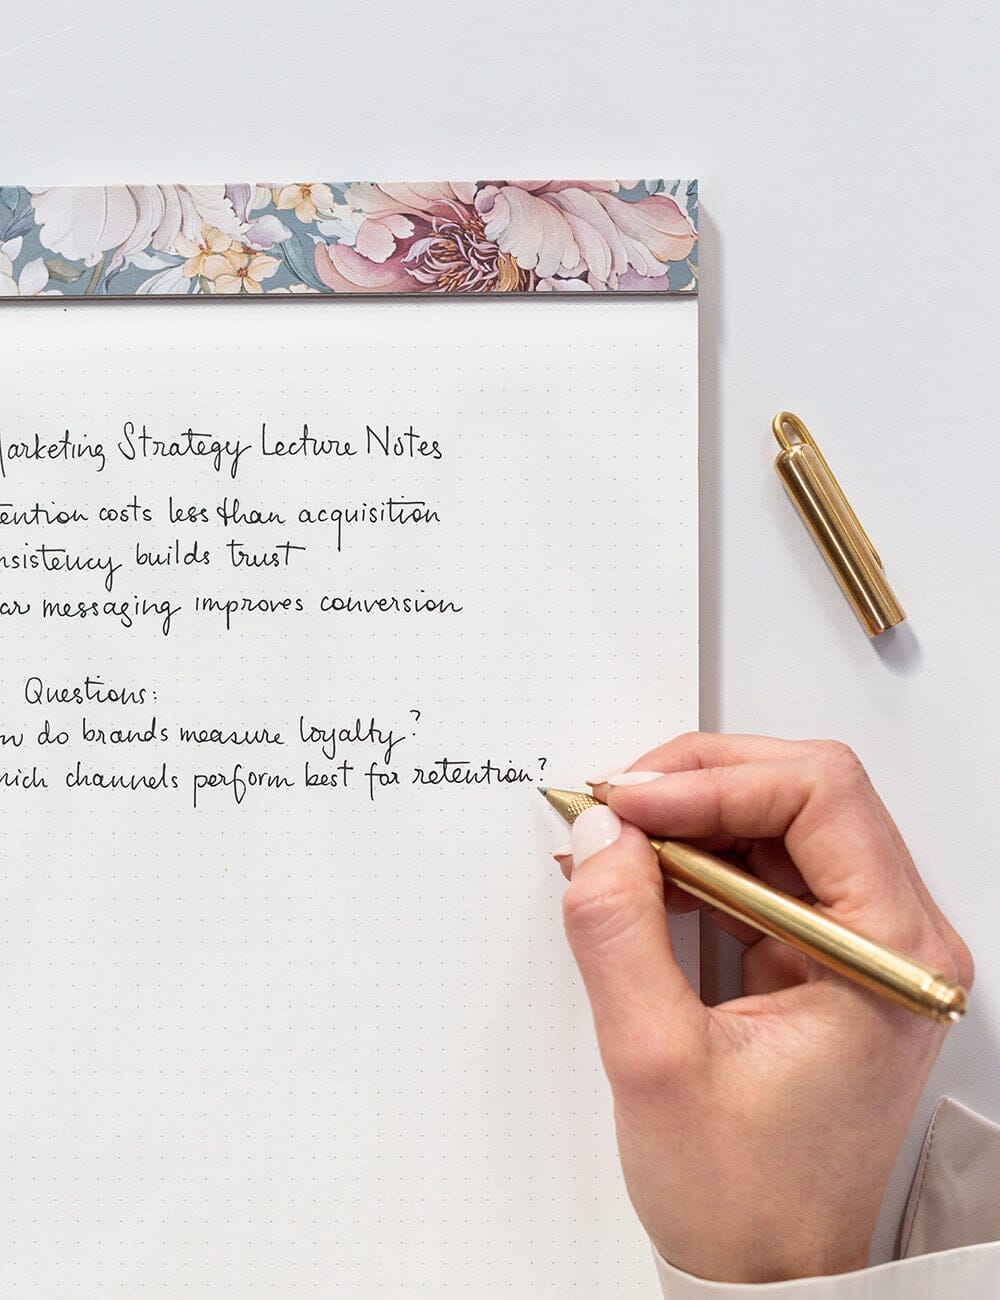 Marketing Strategy Lecture Notes
ention costs less than acquisition
nsistency builds trust
ar messaging improves conversion
Questions:
ow do brands measure loyalty?
hich channels perform best for retention?